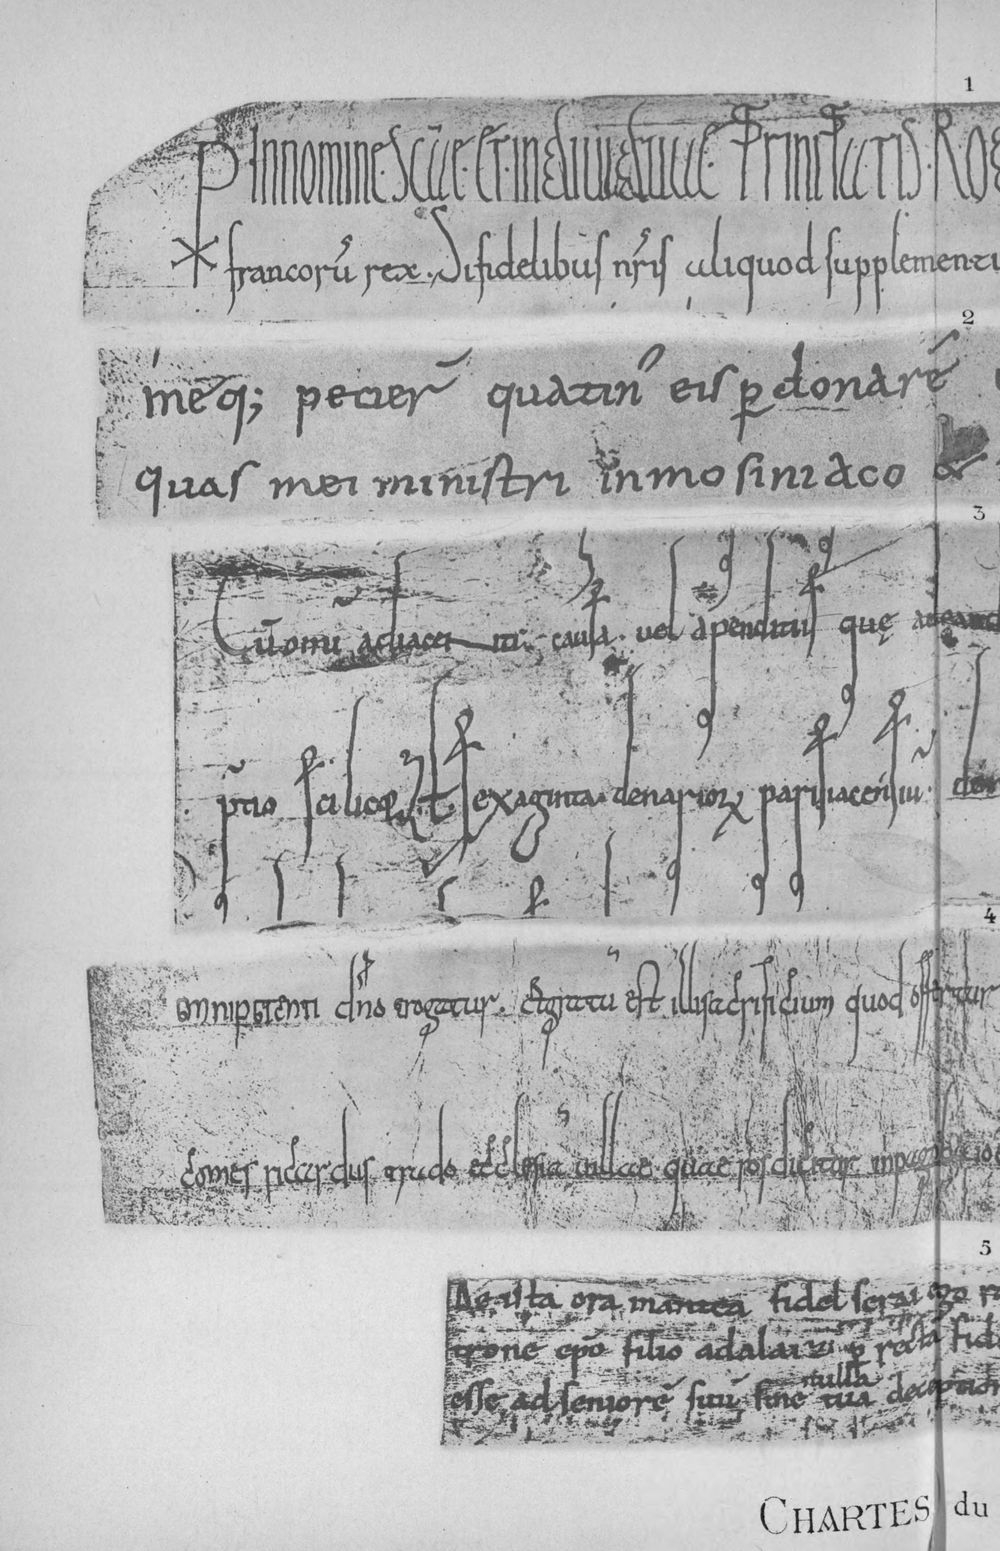 1
In nomine scae et individuae Trinitatis. Ro
francorū rex. Si fidelibus nr̄is aliquod supplementi
2
meq; petier̄ quatin' eis ꝑdonarē
quas mei ministri in mosiniaco &
3
Cū omi adiacen causa. vel apenditiis quę
p̄tio scilicet sexaginta denarioꝝ parisiacensiū.
4
omnipotenti dn̄o erogatur. Et gratū est illi sacrificium quod offertur
comes ricardus trado ecclesiae villae quae dicitur in
5
De ista ora in antea fidel serai ego
epo filio adalaizi ꝑ recta fid
nulla
esse ad seniorē suū sine tua deception
CHARTES du